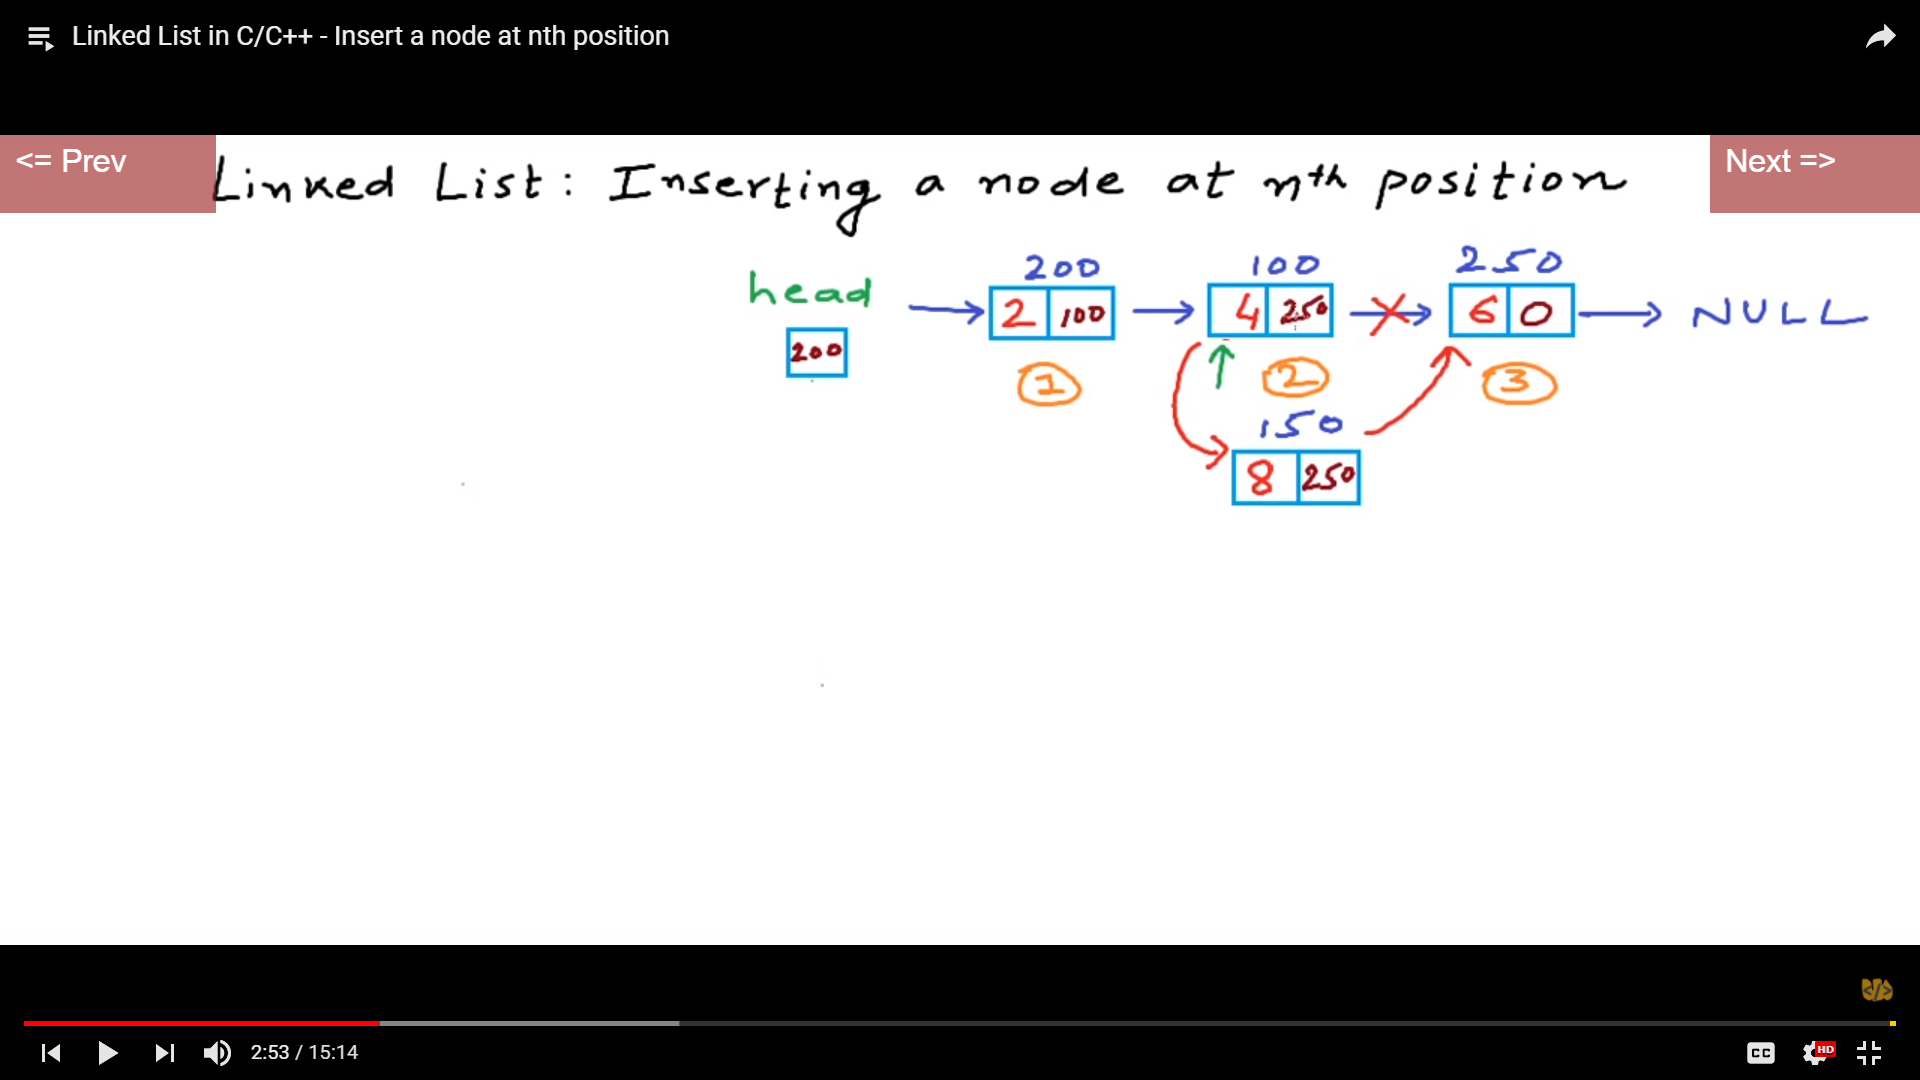 Linked List in C/C++ - Insert a node at nth position
<= Prev
Linked List: Inserting a node at nth position
Next =>
200 100 250
head 2 100 4 250 6 0 NULL
200
1 2 3
150
8 250
2:53 / 15:14
CC HD